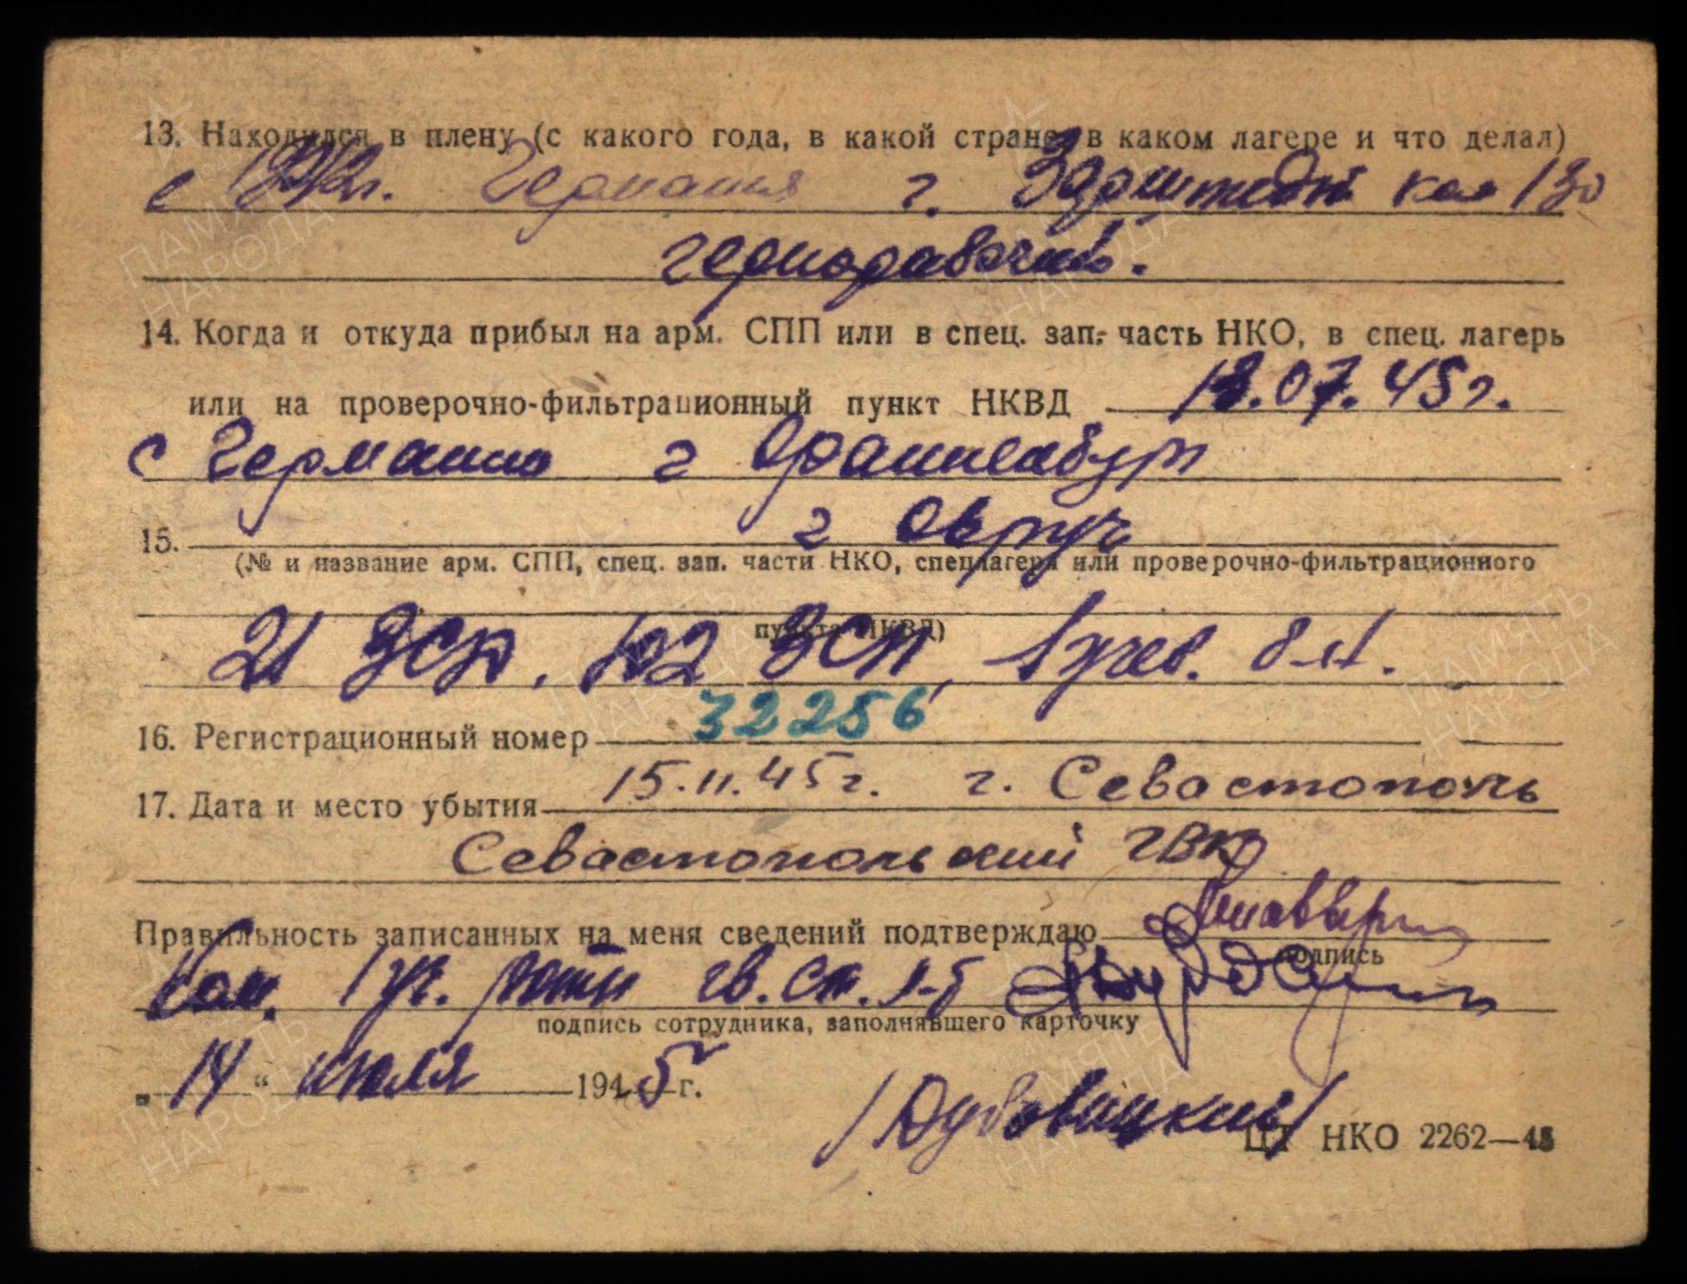 13. Находился в плену (с какого года, в какой стране, в каком лагере и что делал)
с 1942г. Германия г. ком 130
чернорабочий.
14. Когда и откуда прибыл на арм. СПП или в спец. зап. часть НКО, в спец. лагерь
или на проверочно-фильтрационный пункт НКВД 13.07.45г.
с Германии г Ораниенбург
г Овруч
15.
(№ и название арм. СПП, спец. зап. части НКО, спецлагеря или проверочно-фильтрационного
пункта НКВД)
21 ЗСД, 102 ЗСП, 1 учеб. б-н.
32256
16. Регистрационный номер
17. Дата и место убытия 15.11.45г. г. Севастополь
Севастопольский ГВК
Правильность записанных на меня сведений подтверждаю
подпись
Ком. 1 уч. роты гв. ст. л-т
подпись сотрудника, заполнявшего карточку
„ 14 “ июля 1945 г.
/Дубовицкий/
ЦТ НКО 2262—45
ПАМЯТЬ НАРОДА